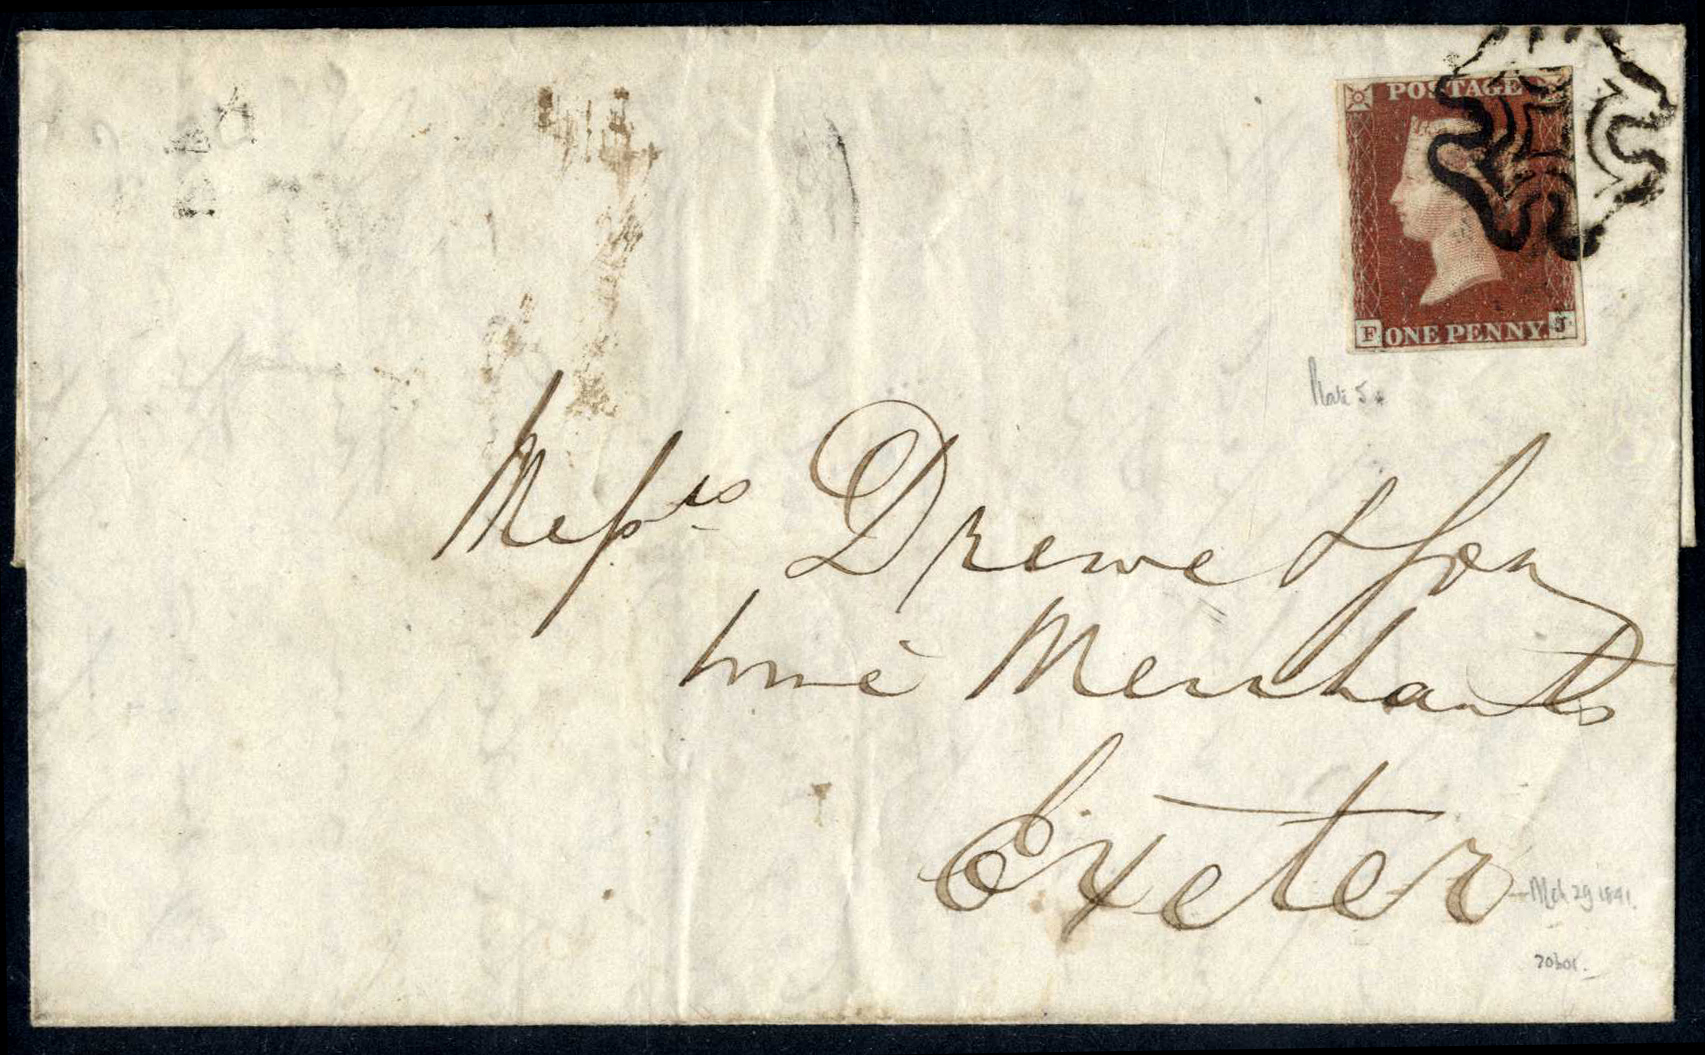 POSTAGE
F ONE PENNY. J
Plate 5
Messrs Drewe & Son
Wine Merchants
Exeter
Mch 29 1841.